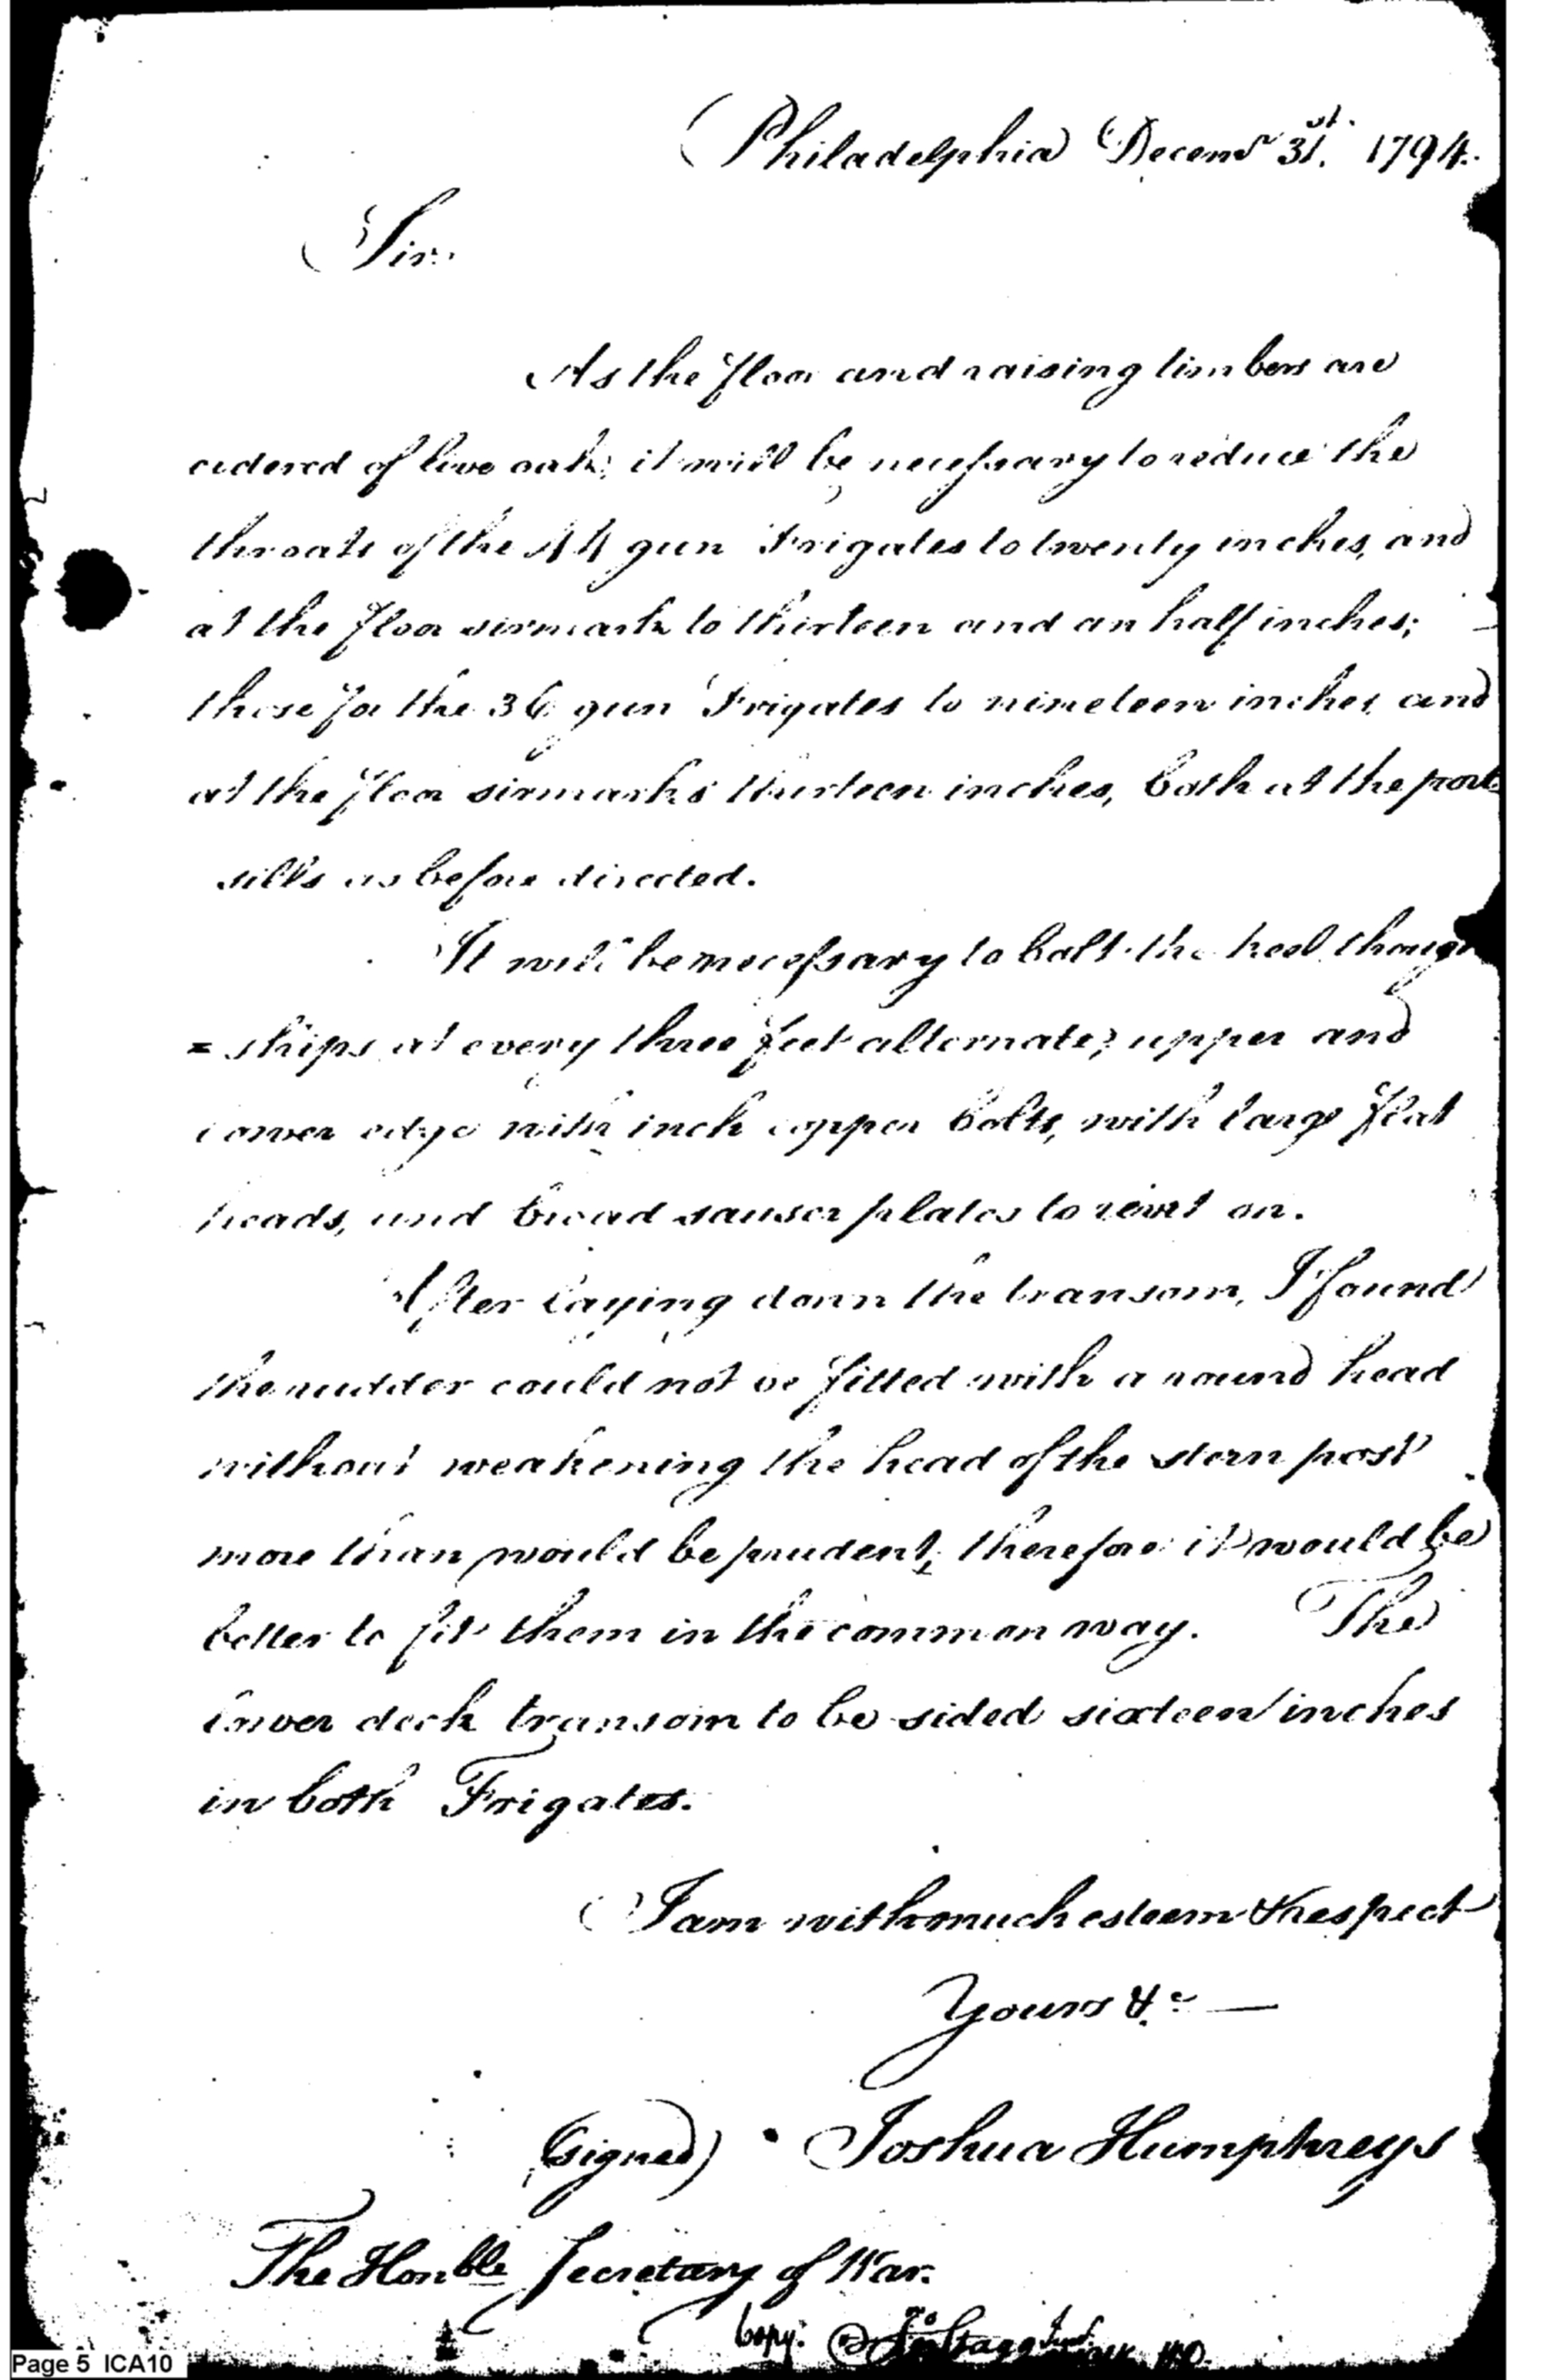 Philadelphia Decemr 31st. 1794.
Sir.
As the floor and raising timbers are
ordered of live oak, it will be necessary to reduce the
throats of the 44 gun Frigates to twenty inches, and
at the floor sirmark to thirteen and an half inches;
those for the 36 gun Frigates to nineteen inches and
at the floor sirmarks thirteen inches, both at the port
sills as before directed.
It will be necessary to bolt the keel though
= ships at every three feet alternate, upper and
lower edge with inch copper bolts, with large flat
heads, and broad sauser plates to rivet on.
After laying down the transom, I found
the rudder could not be fitted with a round head
without weakening the head of the stern post
more than would be prudent, therefore it would be
better to fit them in the common way. The
lower deck transom to be sided sixteen inches
in both Frigates.
I am with much esteem & respect
Yours &c —
(signed) Joshua Humphreys
The Honble Secretary of War.
Copy.
Page 5 ICA10